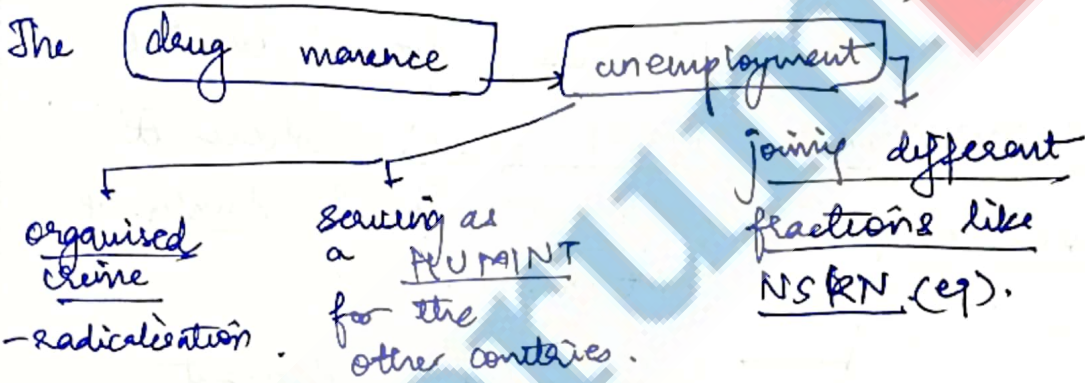 The drug marence → unemployment
organised
crime
- radicalisation.
serving as
a HUMINT
for the
other contries.
joinig different
fractions like
NSKN (eg).
rum